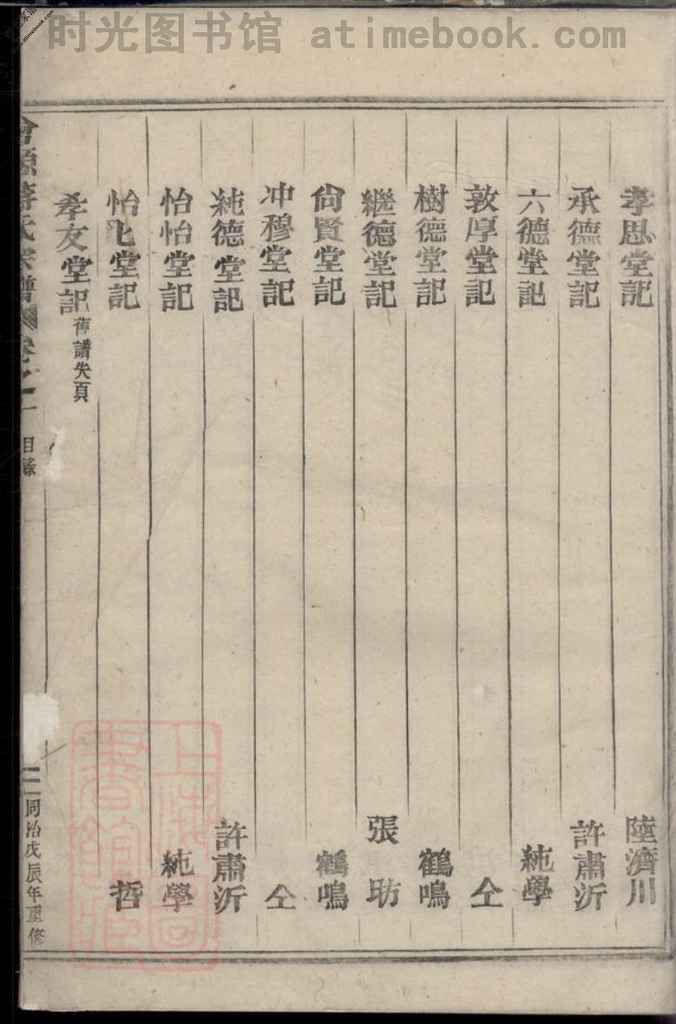 时光图书馆 atimebook.com
孝思堂記 陸濟川
承德堂記 許肅沂
六德堂記 純學
敦厚堂記 仝
樹德堂記 鶴鳴
繼德堂記 張昉
尚賢堂記 鶴鳴
冲穆堂記 仝
純德堂記 許肅沂
怡怡堂記 純學
怡化堂記 哲
孝友堂記 舊譜失頁
蔣氏宗譜 卷之一 目錄 二 同治戊辰年重修